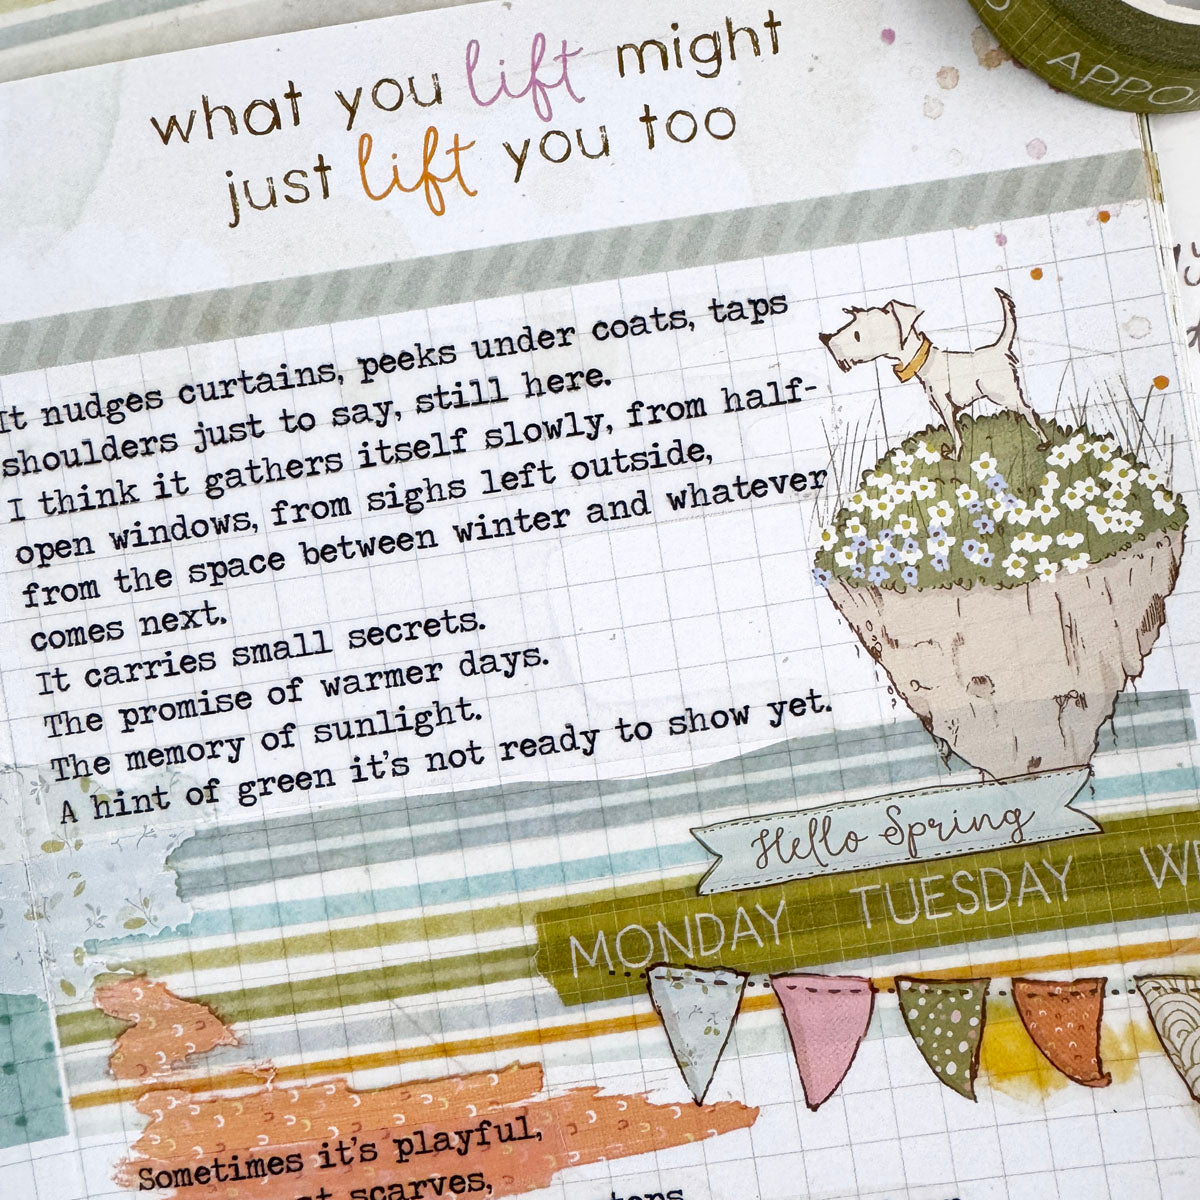 APPO
what you lift might
just lift you too
It nudges curtains, peeks under coats, taps
shoulders just to say, still here.
I think it gathers itself slowly, from half-
open windows, from sighs left outside,
from the space between winter and whatever
comes next.
It carries small secrets.
The promise of warmer days.
The memory of sunlight.
A hint of green it's not ready to show yet.
Hello Spring
MONDAY TUESDAY WE
Sometimes it's playful,
scarves,